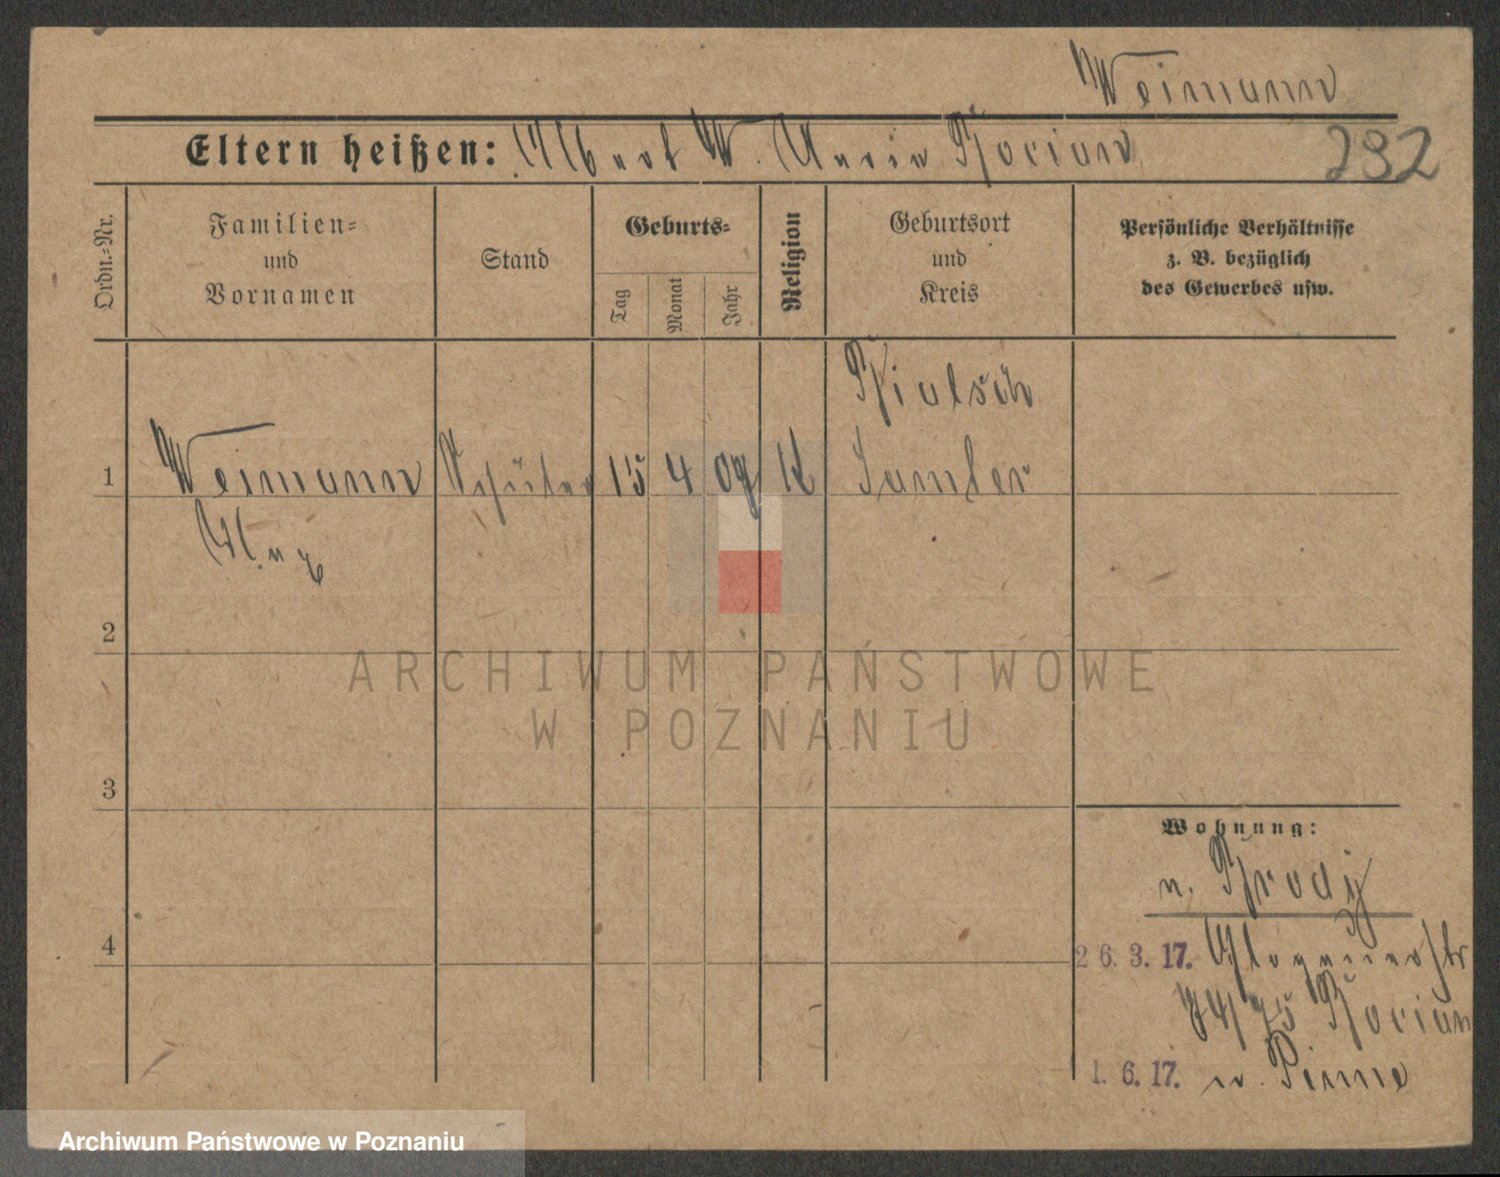 Weimann
Eltern heißen: Albert W. Maria Florian
232
Ordn.-Nr.
Familien-
und
Vornamen
Stand
Geburts-
Tag
Monat
Jahr
Religion
Geburtsort
und
Kreis
Persönliche Verhältnisse
z. B. bezüglich
des Gewerbes usw.
1
Weimann Schüler 15 4 09 K
Samter
Max
2
ARCHIWUM PAŃSTWOWE
W POZNANIU
3
Wohnung:
n. Brody
4
26. 3. 17. Glogauerstr
74/75 Florian
1. 6. 17. n. Pinne
Archiwum Państwowe w Poznaniu